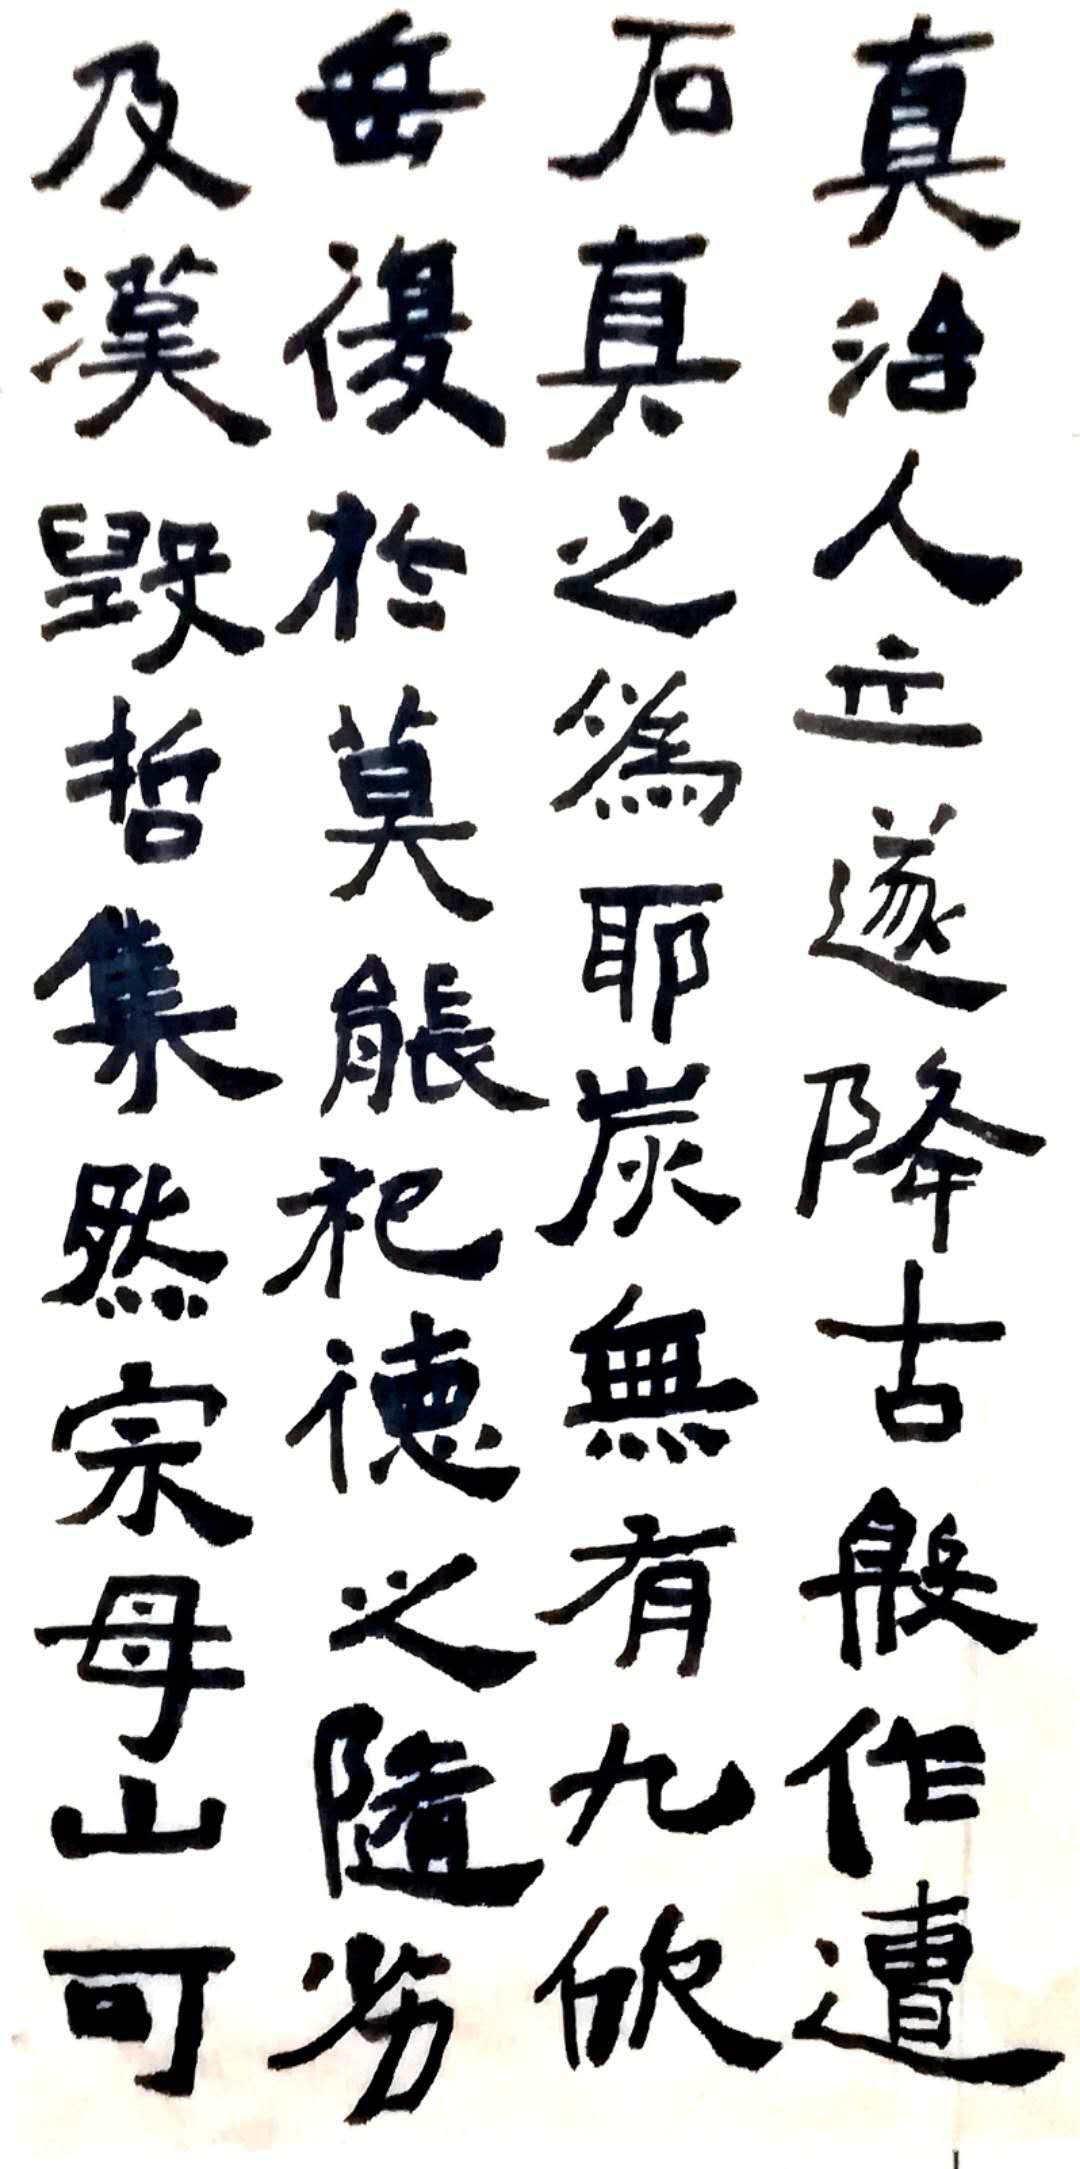 真治人立遂降古殷作遭
石真之為耶炭無有九欣
毋復於莫能祀德之隨勞
及漢毀哲集然宗母山可